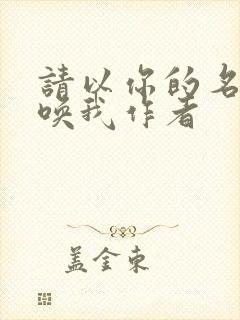 請以你的名
喚我作者
盖金東